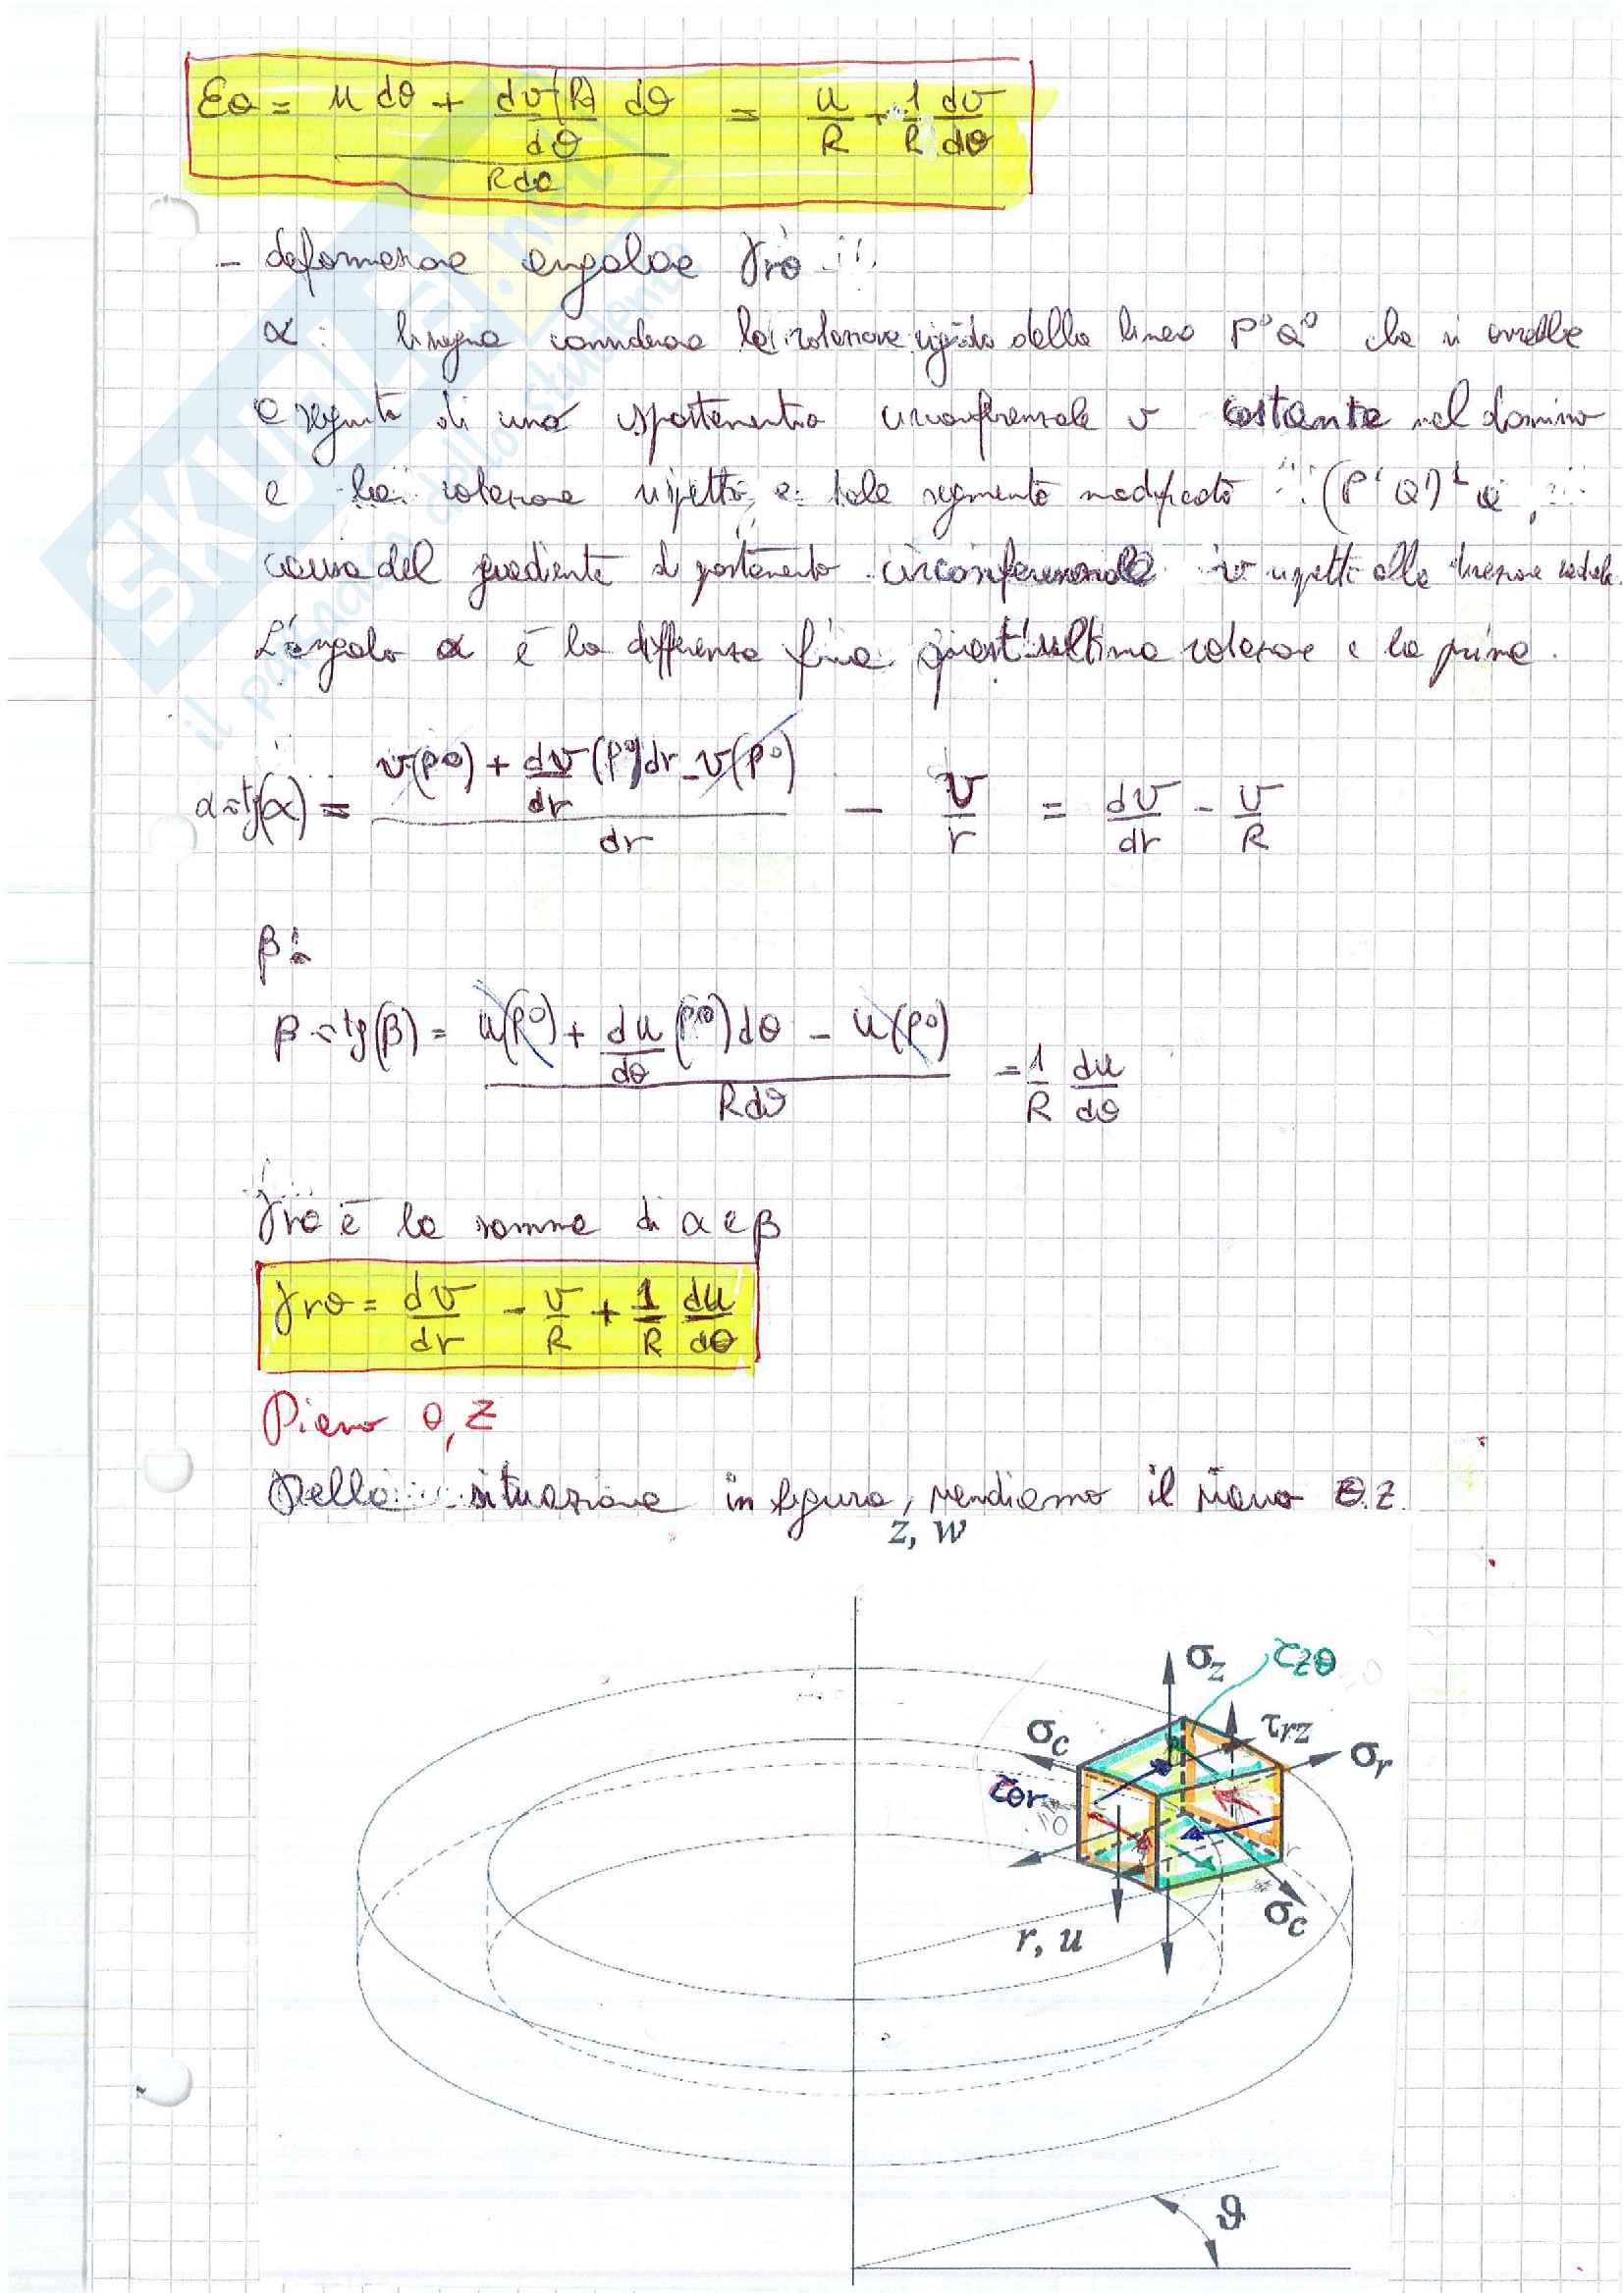 εθ = (u dθ + dv(R)/dθ dθ) / (R dθ) = u/R + 1/R dv/dθ
- deformazione angolare γrθ
α: bisogna considerare la rotazione rigida della linea P⁰Q⁰ che si avrebbe
a seguito di uno spostamento circonferenziale v costante nel dominio
e la rotazione rispetto a tale segmento modificato (P'Q')¹ a
causa del gradiente di spostamento circonferenziale v rispetto alla direzione radiale.
L'angolo α è la differenza fra quest'ultima rotazione e la prima.
α≈tg(α) = (v(P⁰) + dv/dr (P⁰)dr - v(P⁰)) / dr - v/r = dv/dr - v/R
β:
β≈tg(β) = (u(P⁰) + du/dθ (P⁰)dθ - u(P⁰)) / (R dθ) = 1/R du/dθ
γrθ è la somma di α e β
γrθ = dv/dr - v/R + 1/R du/dθ
Piano θ,z
Nella situazione in figura, prendiamo il piano θ.z.
z, w
σz
τzθ
σc
τrz
σr
τθr
σc
r, u
ϑ
SKUOLA.net
il paradiso dello studente